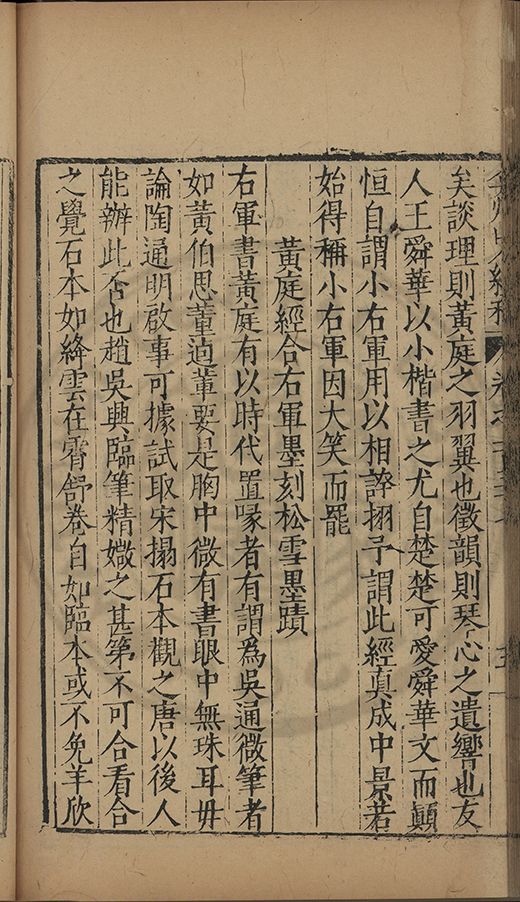 矣談理則黃庭之羽翼也徵韻則琴心之遺響也友
人王舜華以小楷書之尤自楚楚可愛舜華文而顛
恒自謂小右軍用以相誶掤予謂此經真成中景若
始得稱小右軍因大笑而罷
黃庭經合右軍墨刻松雪墨蹟
右軍書黃庭有以時代置喙者有謂為吳通微筆者
如黃伯思董逌輩要是胸中微有書眼中無珠耳毋
論陶通明啟事可據試取宋搨石本觀之唐以後人
能辦此否也趙吳興臨筆精媺之甚第不可合看合
之覺石本如絳雲在霄舒卷自如臨本或不免羊欣